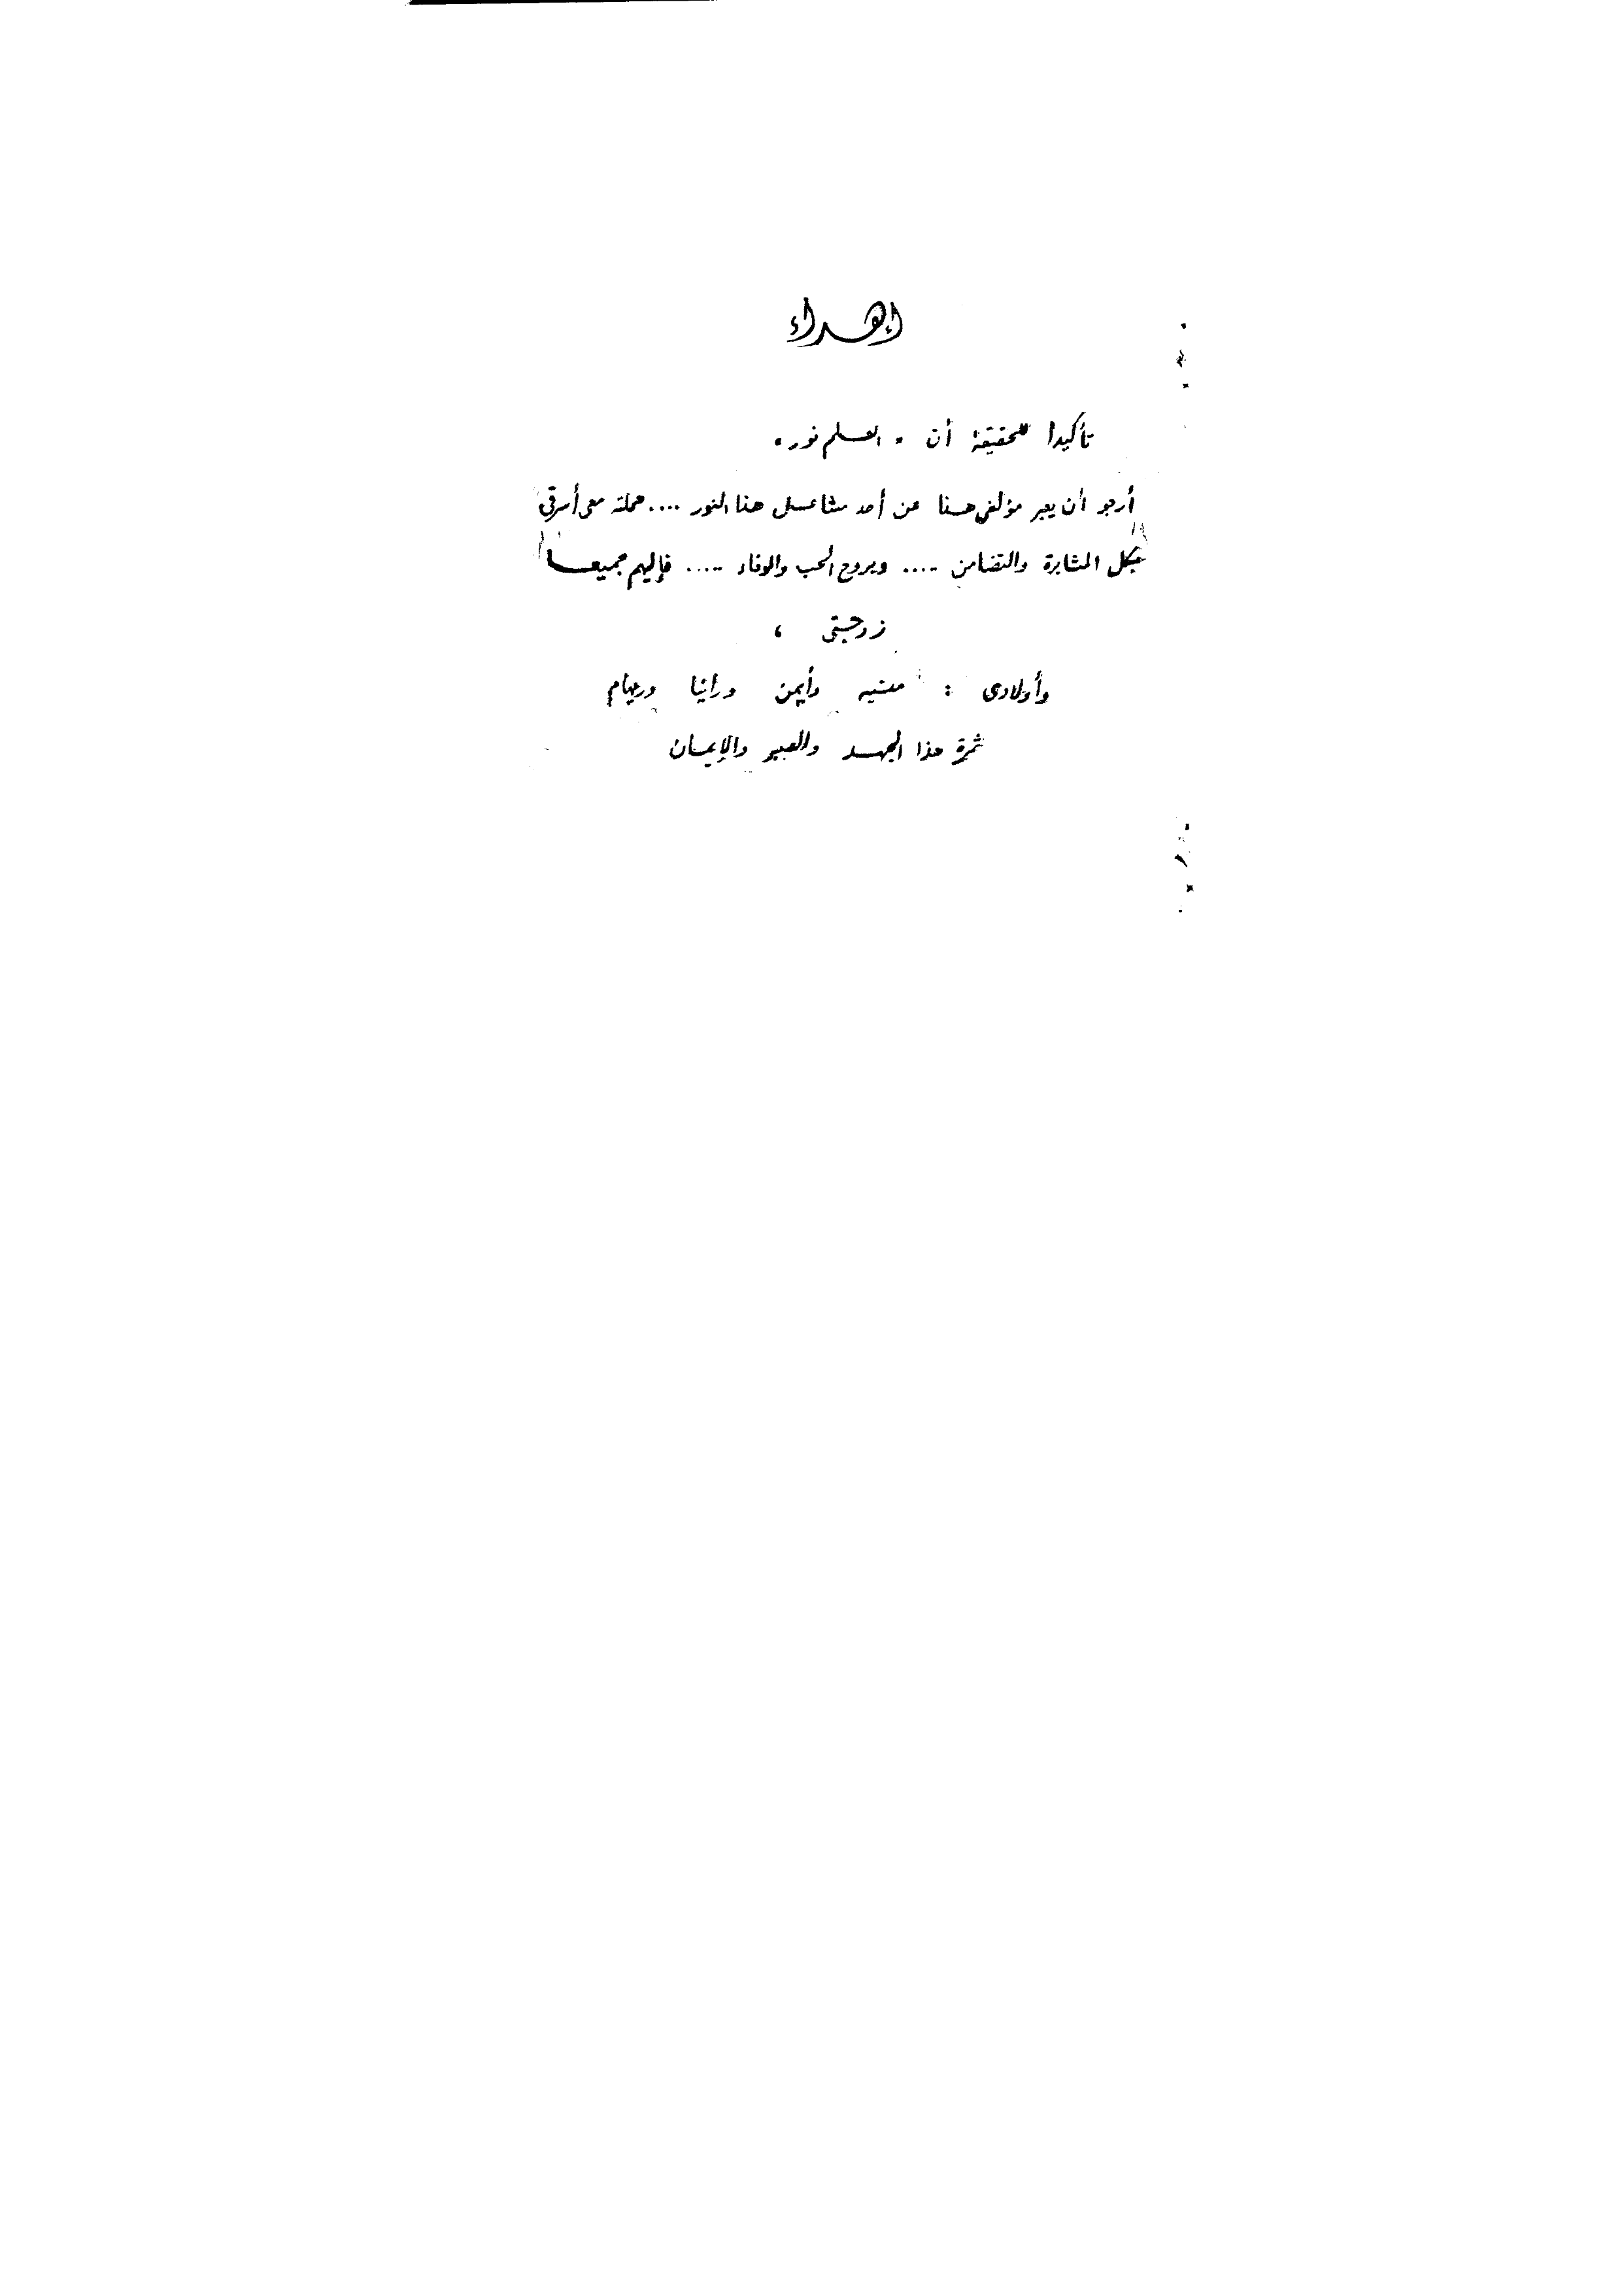 إهداء
تأكيدا للحقيقة أن " العلم نور "
أرجو أن يعبر مؤلفى هنا عن أحد مشاعل هذا النور .... حملته معى أسرتى
بكل المثابرة والتضامن ..... وبروح الحب والوفاء ..... فإليهم جميعا
زوجتى ،
وأولادى : وأيمن ورانيا وريهام
ثمرة هذا الجهد والصبر والإيمان